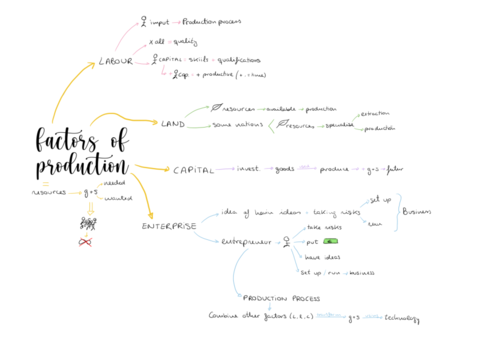 input → Production process
x all = quality
LABOUR
CAPITAL = skills + qualifications
cap → + productive
resources → available → production
LAND
some nations
resources → specialise
extraction
production
factors of
production
CAPITAL → invest → goods → produce → g+s → future
resources → g+s
needed
wanted
ENTERPRISE
idea of having ideas + taking risks
set up
run
Business
Entrepreneur
take risks
put
have ideas
set up / run business
PRODUCTION PROCESS
Combine other factors (L, L, C) → g+s → technology